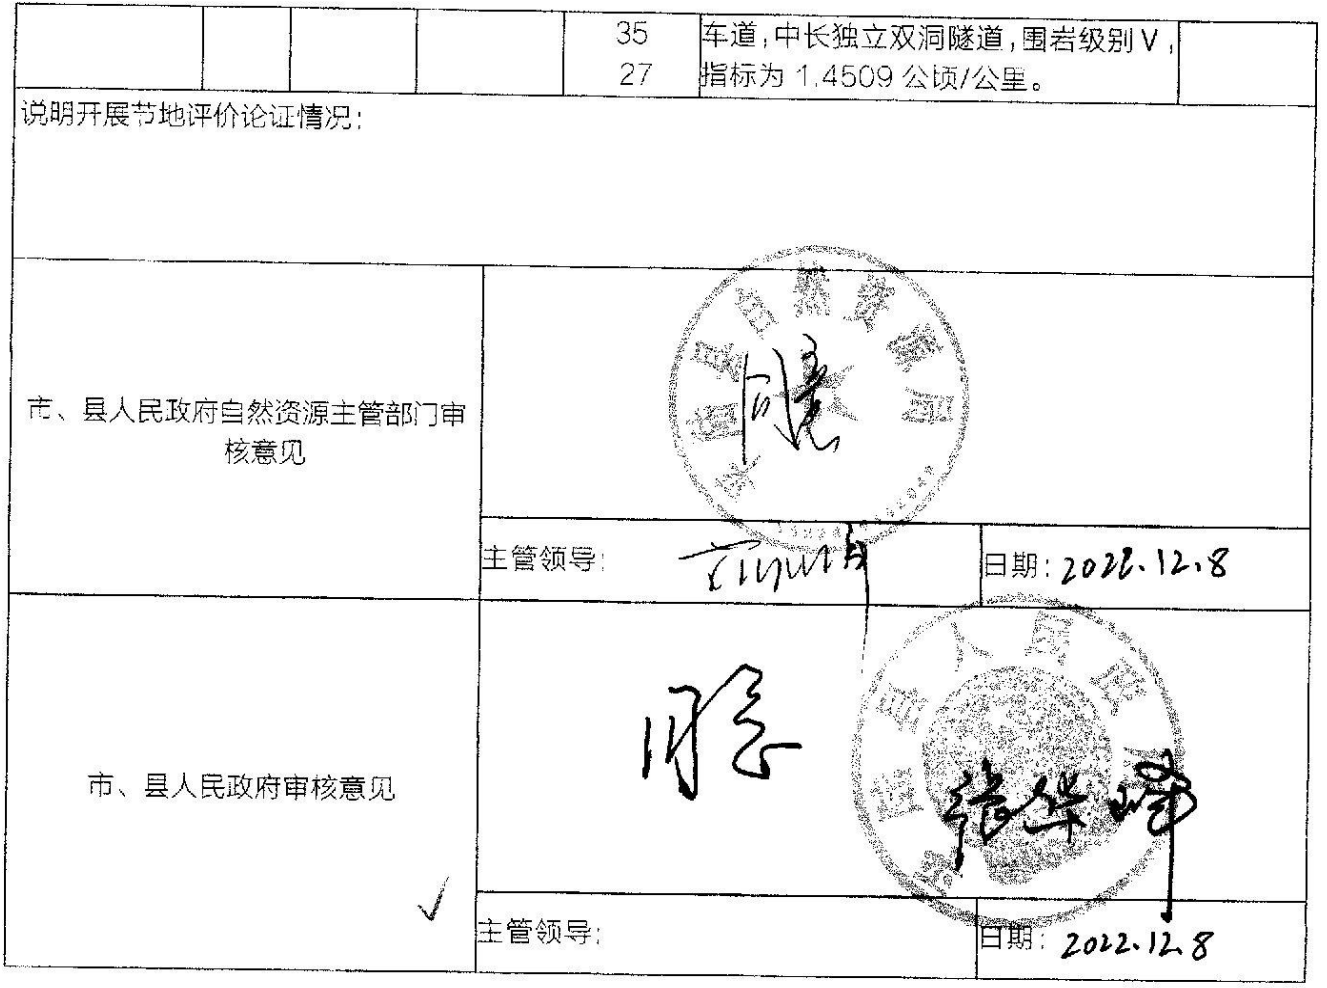 35
27
车道，中长独立双洞隧道，围岩级别 V，
指标为 1.4509 公顷/公里。
说明开展节地评价论证情况：
自然资源局
市、县人民政府自然资源主管部门审
核意见
同意
主管领导：
日期：2022.12.8
人民政府
同意
市、县人民政府审核意见
张华峰
主管领导：
日期：2022.12.8